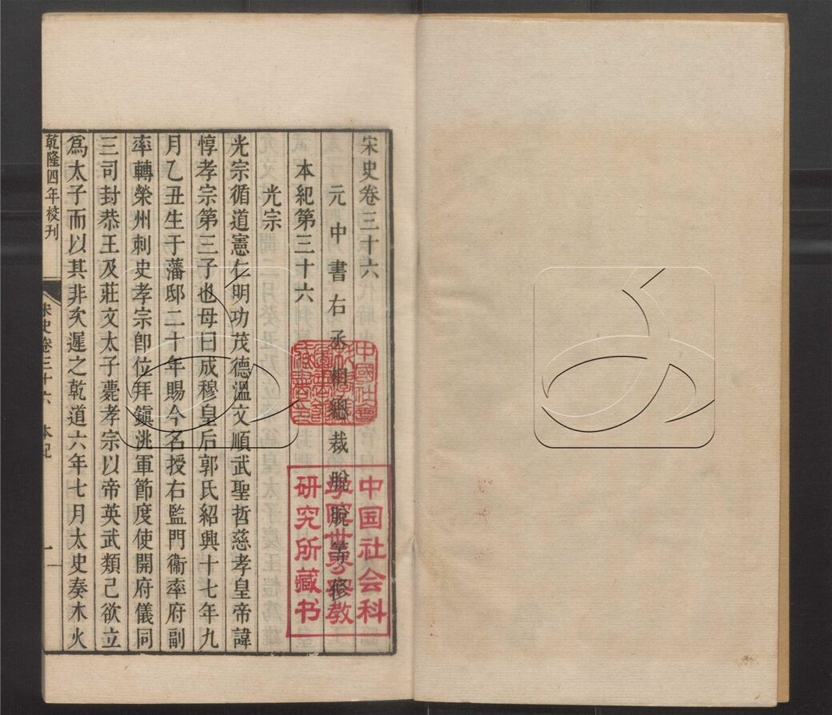 宋史卷三十六
元中書右丞相總裁脫脫等修
本紀第三十六
光宗
光宗循道憲仁明功茂德溫文順武聖哲慈孝皇帝諱
惇孝宗第三子也母曰成穆皇后郭氏紹興十七年九
月乙丑生于藩邸二十年賜今名授右監門衛率府副
率轉榮州刺史孝宗卽位拜鎮洮軍節度使開府儀同
三司封恭王及莊文太子薨孝宗以帝英武類己欲立
爲太子而以其非次遲之乾道六年七月太史奏木火
乾隆四年校刊
宋史卷三十六 本紀
一
中国社会科
学院世界宗教
研究所藏书